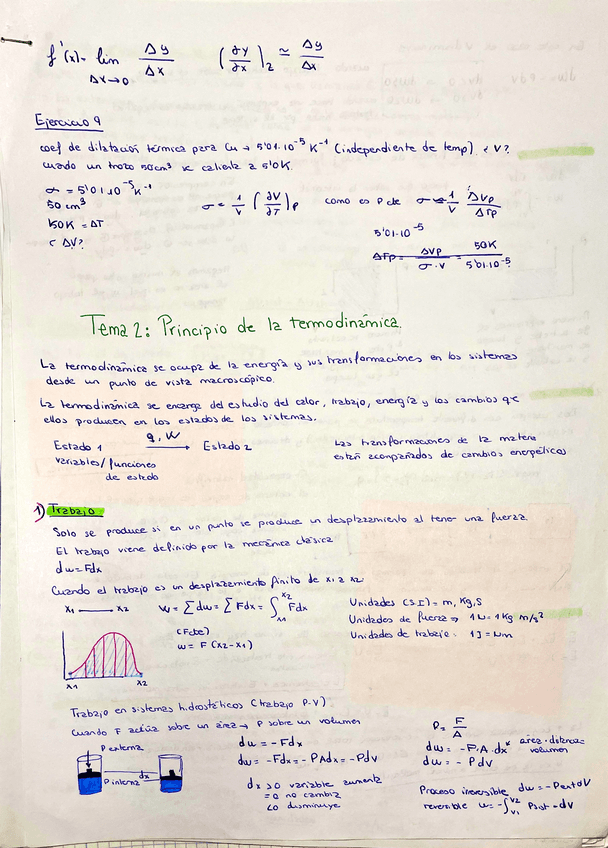 f'(x) = lim Δx→0 Δy/Δx   (∂y/∂x)₂ ≃ Δy/Δx
Ejercicio 9
coef de dilatación térmica para Cu → 5'01·10⁻⁵ K⁻¹ (independiente de temp). ¿ V?
cuando un trozo 50cm³ se calienta a 5'0K.
σ = 5'01·10⁻⁵K⁻¹
50 cm³
50K = ΔT
¿ ΔV?
σ = 1/V (∂V/∂T)p   como es P cte   σ = 1/V ΔVp/ΔTp
5'01·10⁻⁵
ΔTp = ΔVp/σ·V = 50K/5'01·10⁻⁵
Tema 2: Principio de la termodinámica.
La termodinámica se ocupa de la energía y sus transformaciones en los sistemas
desde un punto de vista macroscópico.
La termodinámica se encarga del estudio del calor, trabajo, energía y los cambios qe
ellos producen en los estados de los sistemas.
Estado 1   q, W →   Estado 2
variables/funciones
de estado
Las transformaciones de la materia
están acompañados de cambios energéticos
1) Trabajo
Solo se produce si en un punto se produce un desplazamiento al tener una fuerza
El trabajo viene definido por la mecánica clásica
dw = Fdx
Cuando el trabajo es un desplazamiento finito de x1 a x2
x1 → x2   W = ∑dw = ∑Fdx = ∫x1 x2 Fdx
(Fcte)
w = F (x2-x1)
Unidades (S.I) = m, Kg, S
Unidades de fuerza ⇒ 1N = 1Kg m/s²
Unidades de trabajo: 1J = Nm
x1   x2
Trabajo en sistemas hidrostáticos (trabajo P-V)
Cuando F actúa sobre un área → P sobre un volumen
P externa
dx
P interna
dw = -Fdx
dw = -Fdx = -PAdx = -PdV
dx >0 variable aumenta
=0 no cambia
<0 disminuye
P = F/A
dw = -P·A·dx   área·distancia
volumen
dw = - P dV
Proceso irreversible dw = -PextdV
reversible w = -∫V1 V2 Psist · dV